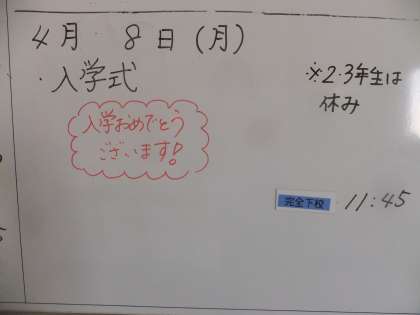 4月 8日(月)
・入学式
※2・3年生は
休み
入学おめでとう
ございます!
完全下校 11:45